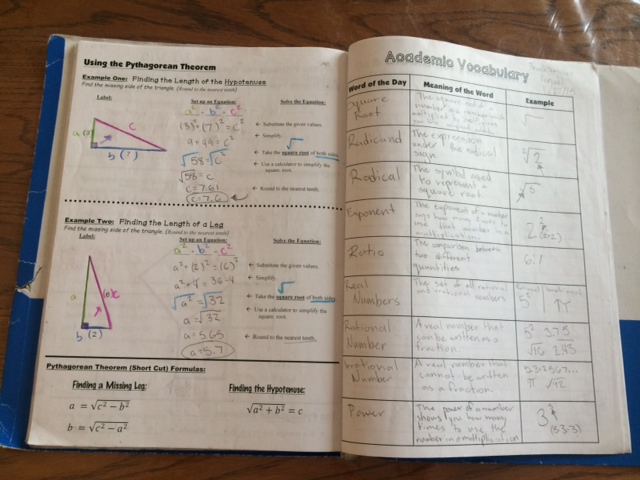 Using the Pythagorean Theorem
Example One: Finding the Length of the Hypotenuse
Find the missing side of the triangle. (Round to the nearest tenth)
Label:
Set up an Equation:
Solve the Equation:
a² + b² = c²
(3)² + (7)² = c²
← Substitute the given values.
← Simplify.
9 + 49 = c²
√
← Take the square root of both sides
√58 = √c²
← Use a calculator to simplify the
square root.
√58 = c
c = 7.61
← Round to the nearest tenth.
c = 7.6
a (3)
c
b (7)
Example Two: Finding the Length of a Leg
Find the missing side of the triangle. (Round to the nearest tenth)
Label:
Set up an Equation:
Solve the Equation:
a² + b² = c²
a² + (2)² = (6)²
← Substitute the given values.
a² + 4 = 36 - 4
← Simplify.
√
← Take the square root of both sides
√a² = √32
← Use a calculator to simplify the
square root.
a = √32
a = 5.65
← Round to the nearest tenth.
a = 5.7
a
(6) c
b (2)
Pythagorean Theorem (Short Cut) Formulas:
Finding a Missing Leg:
Finding the Hypotenuse:
a = √c² − b²
√a² + b² = c
b = √c² − a²
Academic Vocabulary
Word of the Day
Meaning of the Word
Example
Square
Root
√
Radicand
The expression
under the radical
sign
√2
Radical
The symbol used
to represent a
square root
√5
Exponent
The exponent of a number
says how many times to
use that number in a
multiplication
2² (2·2)
Ratio
The comparison between
two different
quantities
6:1
Real
Numbers
The set of all rational
and irrational numbers
Rational
Number
A real number that
can be written as a
fraction
√16
Irrational
Number
A real number that
cannot be written
as a fraction
π √42
Power
The power of a number
shows you how many
times to use the
number in a multiplication
3³
(3·3·3)